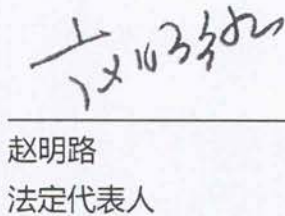 赵明路
法定代表人